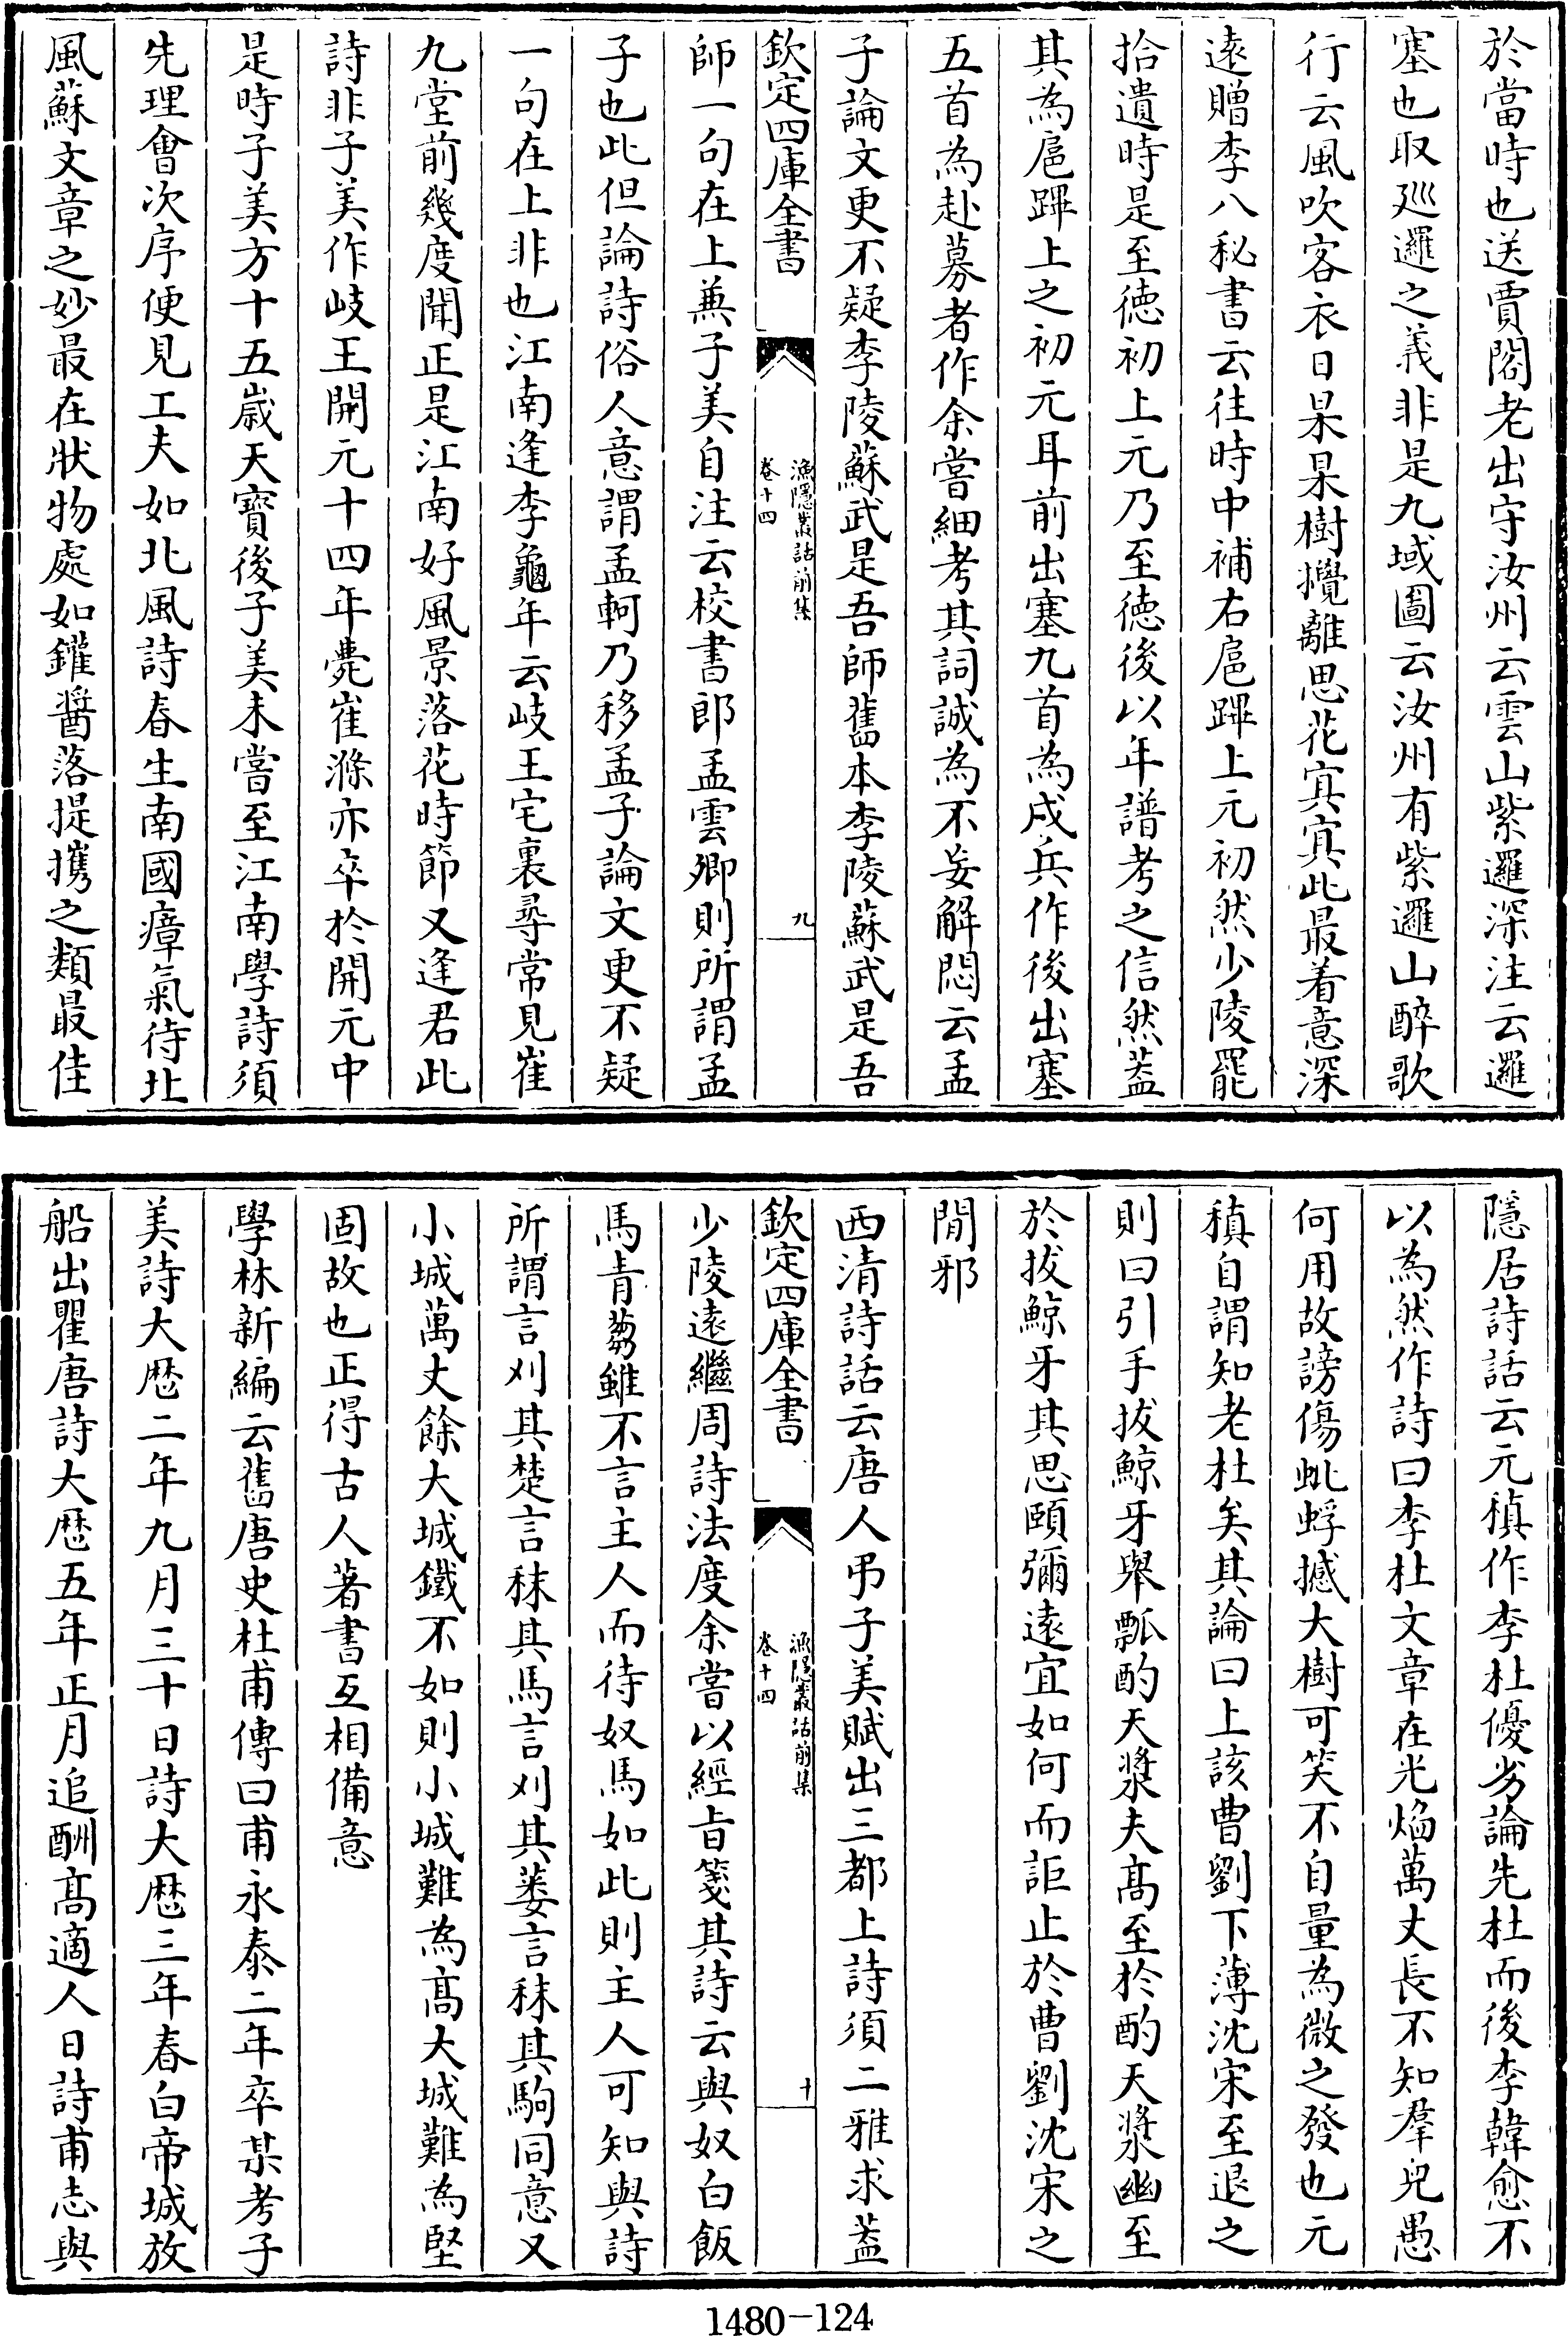 於當時也送賈閣老出守汝州云雲山紫邏深注云邏
塞也取廵邏之義非是九域圖云汝州有紫邏山醉歌
行云風吹客衣日杲杲樹攪離思花㝠㝠此最着意深
遠贈李八秘書云往時中補右扈蹕上元初然少陵罷
拾遺時是至徳初上元乃至徳後以年譜考之信然葢
其為扈蹕上之初元耳前出塞九首為戍兵作後出塞
五首為赴募者作余嘗細考其詞誠為不妄解悶云孟
子論文更不疑李陵蘇武是吾師舊本李陵蘇武是吾
欽定四庫全書
漁隱叢話前集
卷十四
九
師一句在上兼子美自注云校書郎孟雲卿則所謂孟
子也此但論詩俗人意謂孟軻乃移孟子論文更不疑
一句在上非也江南逢李龜年云岐王宅裏尋常見崔
九堂前幾度聞正是江南好風景落花時節又逢君此
詩非子美作岐王開元十四年薨崔滌亦卒於開元中
是時子美方十五嵗天寳後子美未嘗至江南學詩須
先理會次序便見工夫如北風詩春生南國瘴氣待北
風蘇文章之妙最在狀物處如鑵醬落提攜之類最佳
隱居詩話云元稹作李杜優劣論先杜而後李韓愈不
以為然作詩曰李杜文章在光焰萬丈長不知羣兒愚
何用故謗傷蚍蜉撼大樹可笑不自量為微之發也元
稹自謂知老杜矣其論曰上該曹劉下薄沈宋至退之
則曰引手拔鯨牙舉瓢酌天漿夫髙至於酌天漿幽至
於拔鯨牙其思頤彌遠宜如何而詎止於曹劉沈宋之
間邪
西清詩話云唐人弔子美賦出三都上詩須二雅求葢
欽定四庫全書
漁隱叢話前集
卷十四
十
少陵遠繼周詩法度余嘗以經旨箋其詩云與奴白飯
馬青芻雖不言主人而待奴馬如此則主人可知與詩
所謂言刈其楚言秣其馬言刈其蔞言秣其駒同意又
小城萬丈餘大城鐵不如則小城難為髙大城難為堅
固故也正得古人著書互相備意
學林新編云舊唐史杜甫傳曰甫永泰二年卒某考子
美詩大厯二年九月三十日詩大厯三年春白帝城放
船出瞿唐詩大厯五年正月追酬髙適人日詩甫志與
1480-124